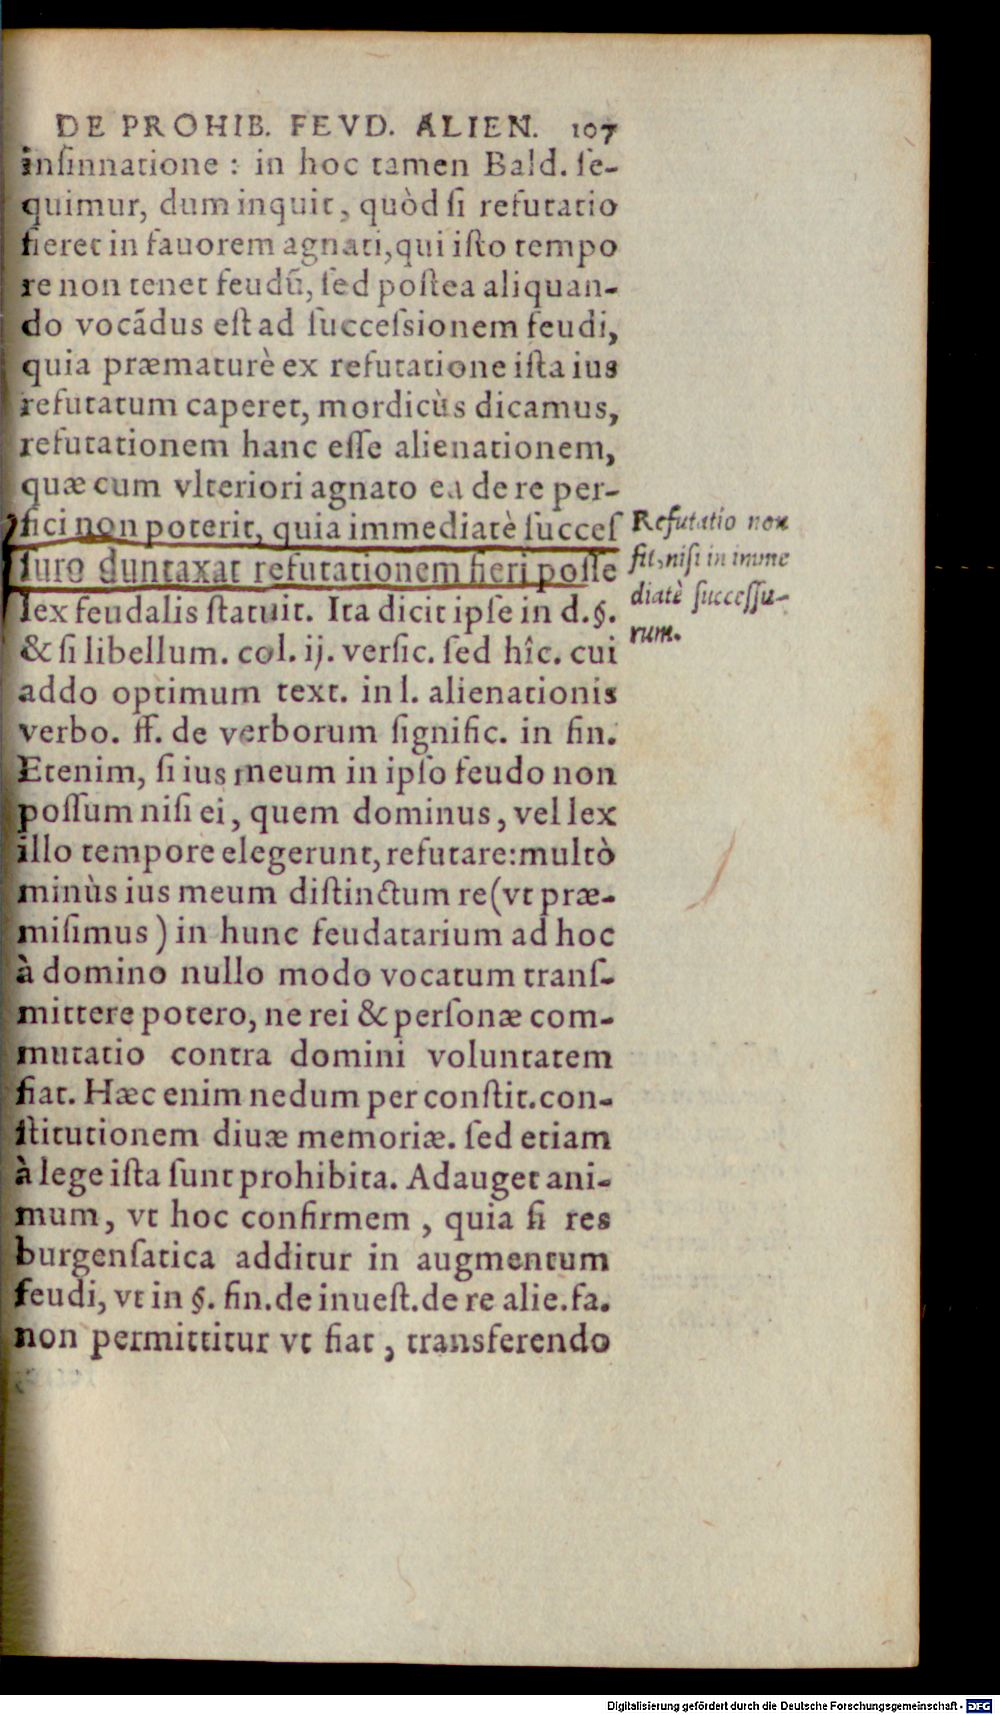 DE PROHIB. FEVD. ALIEN. 107
inſinnatione : in hoc tamen Bald. ſe-
quimur, dum inquit, quòd ſi refutatio
fieret in fauorem agnati, qui iſto tempo
re non tenet feudū, ſed poſtea aliquan-
do vocādus eſt ad ſucceſsionem feudi,
quia præmaturè ex refutatione iſta ius
refutatum caperet, mordicùs dicamus,
refutationem hanc eſſe alienationem,
quæ cum vlteriori agnato ea de re per-
fici non poterit, quia immediatè ſucceſ
ſuro duntaxat refutationem fieri poſſe
lex feudalis ſtatuit. Ita dicit ipſe in d.§.
& ſi libellum. col. ij. verſic. ſed hîc. cui
addo optimum text. in l. alienationis
verbo. ff. de verborum ſignific. in fin.
Etenim, ſi ius meum in ipſo feudo non
poſſum niſi ei, quem dominus, vel lex
illo tempore elegerunt, refutare: multò
minùs ius meum diſtinctum re (vt præ-
miſimus) in hunc feudatarium ad hoc
à domino nullo modo vocatum tranſ-
mittere potero, ne rei & perſonæ com-
mutatio contra domini voluntatem
fiat. Hæc enim nedum per conſtit. con-
ſtitutionem diuæ memoriæ. ſed etiam
à lege iſta ſunt prohibita. Adauget ani-
mum, vt hoc confirmem, quia ſi res
burgenſatica additur in augmentum
feudi, vt in §. fin. de inueſt. de re alie. fa.
non permittitur vt fiat, transferendo
Refutatio non
fit, niſi in imme
diatè ſucceſſu-
rum.
Digitalisierung gefördert durch die Deutsche Forschungsgemeinschaft - DFG